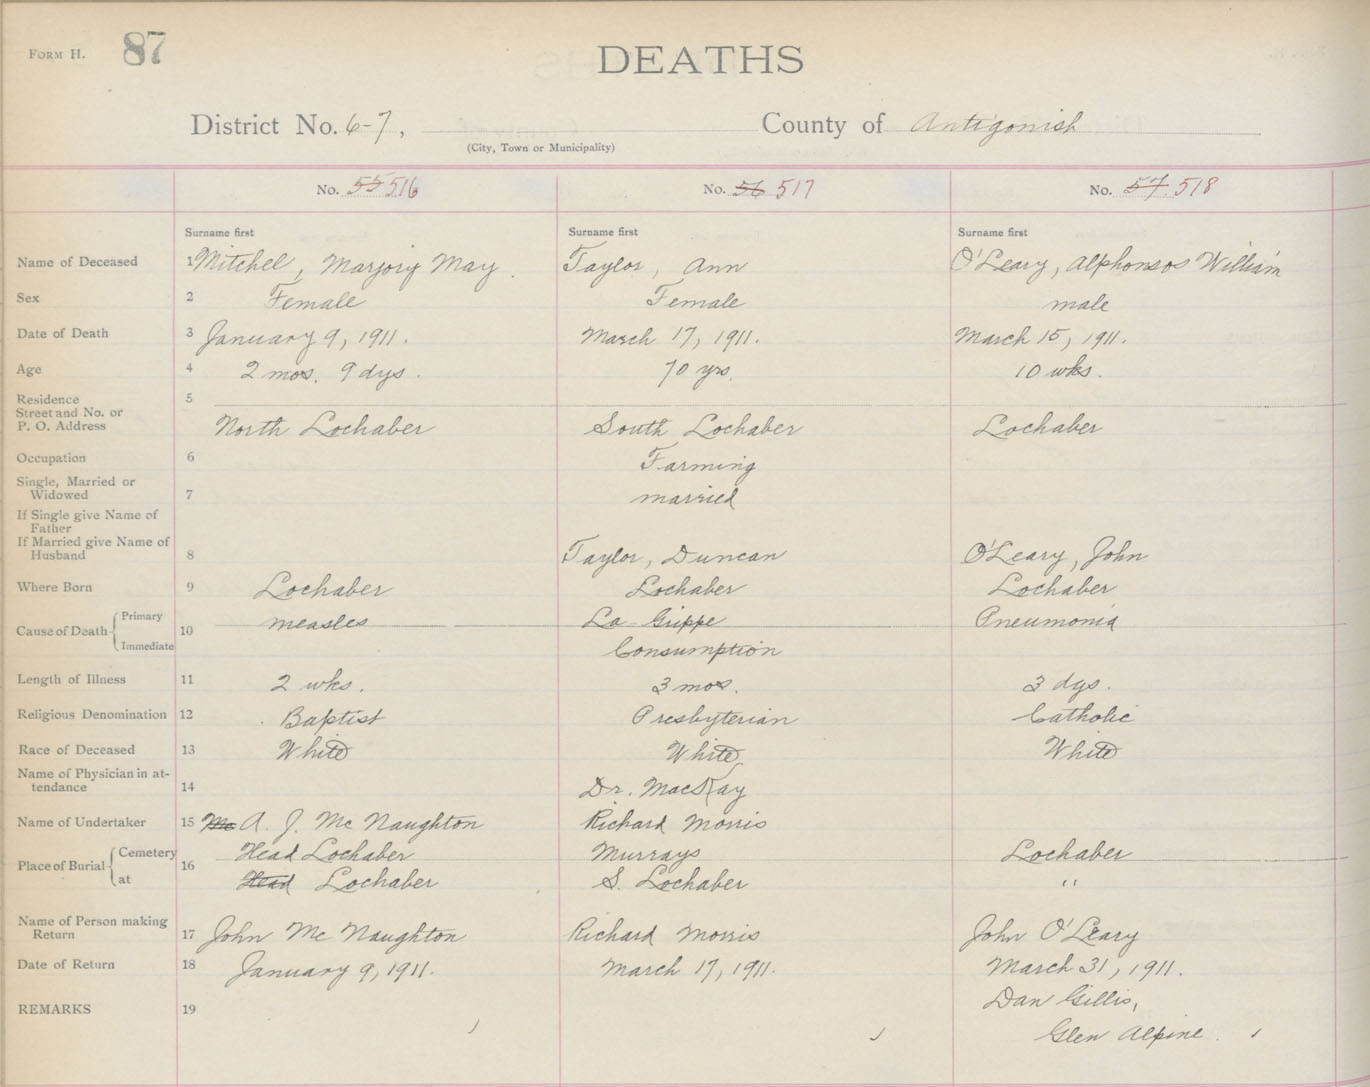 FORM H. 87
DEATHS
District No. 6-7, County of Antigonish
(City, Town or Municipality)
No. 55 516 No. 56 517 No. 57 518
Surname first Surname first Surname first
Name of Deceased 1 Mitchel, Marjory May. Taylor, Ann O'Leary, Alphonsos William
Sex 2 Female Female male
Date of Death 3 January 9, 1911. March 17, 1911. March 15, 1911.
Age 4 2 mos. 9 dys. 70 yrs. 10 wks.
Residence 5
Street and No. or
P. O. Address North Lochaber South Lochaber Lochaber
Occupation 6 Farming
Single, Married or
Widowed 7 married
If Single give Name of
Father
If Married give Name of
Husband 8 Taylor, Duncan O'Leary, John
Where Born 9 Lochaber Lochaber Lochaber
Cause of Death 10 Primary measles La-Grippe Pneumonia
Immediate Consumption
Length of Illness 11 2 wks. 3 mos. 3 dys.
Religious Denomination 12 Baptist Presbyterian Catholic
Race of Deceased 13 White White White
Name of Physician in at-
tendance 14 Dr. MacKay
Name of Undertaker 15 Mc A. J. McNaughton Richard Morris
Place of Burial 16 Cemetery Head Lochaber Murrays Lochaber
at Head Lochaber S. Lochaber "
Name of Person making
Return 17 John McNaughton Richard Morris John O'Leary
Date of Return 18 January 9, 1911. March 17, 1911. March 31, 1911.
REMARKS 19 Dan Gillis,
Glen Alpine.